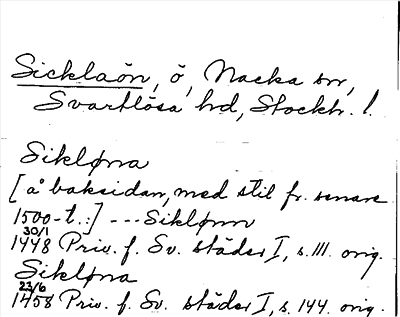 Sicklaön, ö, Nacka sn,
Svartlösa hd, Stockh. l.
Sikløna
[å baksidan, med stil fr. senare
1500-t.:] --- Siklønn
30/1
1448 Priv. f. Sv. städer I, s. 111. orig.
Sikløna
23/6
1458 Priv. f. Sv. städer I, s. 144. orig.